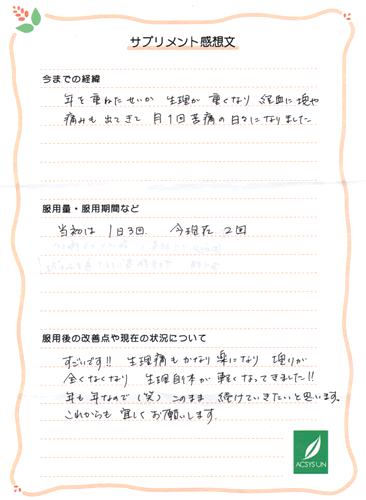 サプリメント感想文
今までの経緯
年を重ねたせいか 生理が 重くなり 経血に塊や
痛みも 出てきて 月1回苦痛の日々になりました
服用量・服用期間など
当初は 1日3回. 今現在 2回
服用後の改善点や現在の状況について
すごいです!! 生理痛もかなり楽になり 塊りが
全くなくなり 生理自体が軽くなってきました!!
年も年なので(笑) このまま 続けていきたいと思います。
これからも 宜しくお願いします。
ACSYSUN